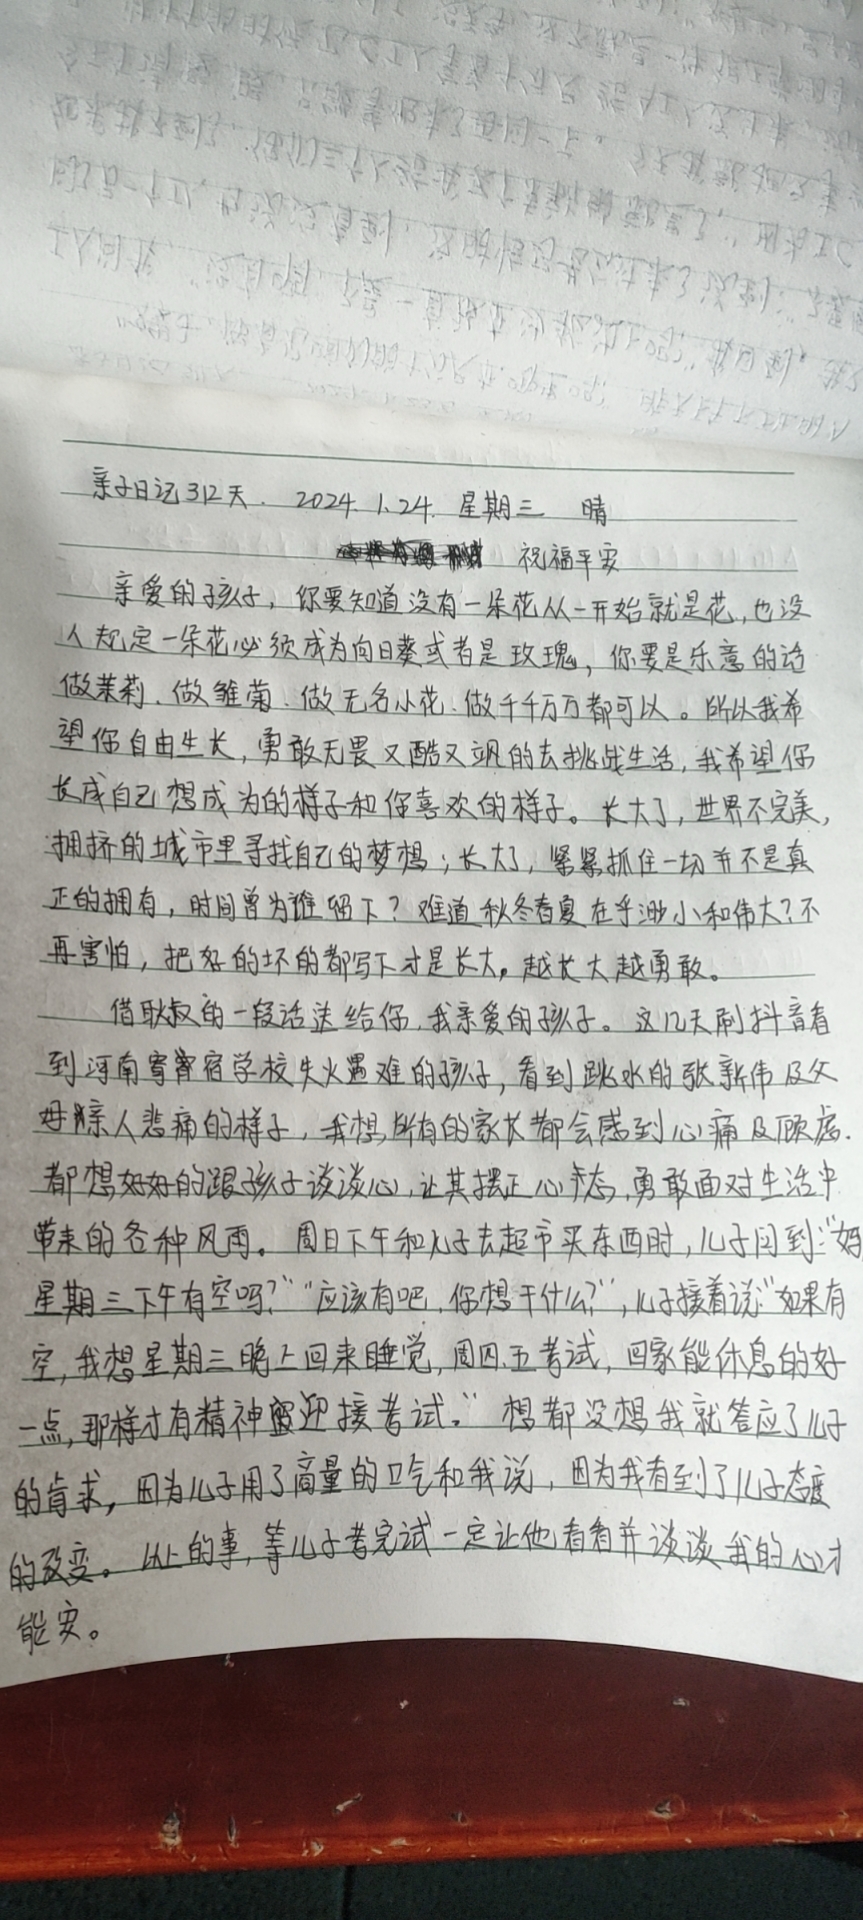 亲子日记312天. 2024.1.24. 星期三 晴
祝福平安
亲爱的孩子，你要知道没有一朵花从一开始就是花，也没
人规定一朵花必须成为向日葵或者是玫瑰，你要是乐意的话
做茉莉、做雏菊、做无名小花、做千千万万都可以。所以我希
望你自由生长，勇敢无畏又酷又飒的去挑战生活，我希望你
长成自己想成为的样子和你喜欢的样子。长大了，世界不完美，
拥挤的城市里寻找自己的梦想；长大了，紧紧抓住一切并不是真
正的拥有，时间曾为谁留下？难道秋冬春夏在乎渺小和伟大？不
再害怕，把好的坏的都写下才是长大。越长大越勇敢。
借耿叔的一段话送给你，我亲爱的孩子。这几天刷抖音看
到河南寄宿学校失火遇难的孩子，看到跳水的张新伟及父
母亲人悲痛的样子，我想，所有的家长都会感到心痛及顾虑.
都想好好的跟孩子谈谈心，让其摆正心态，勇敢面对生活中
带来的各种风雨。周日下午和儿子去超市买东西时，儿子问到：“妈
星期三下午有空吗？”“应该有吧，你想干什么？”，儿子接着说：“如果有
空，我想星期三晚上回来睡觉，周四.五考试，回家能休息的好
一点，那样才有精神迎接考试。”想都没想我就答应了儿子
的肯求，因为儿子用了商量的口气和我说，因为我看到了儿子态度
的改变。以上的事，等儿子考完试一定让他看看并谈谈我的心才
能安。